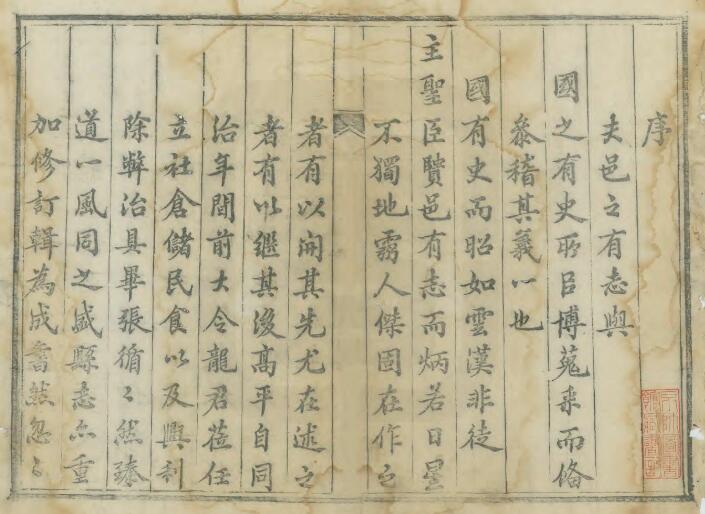 序
夫邑之有志與
國之有史所㠯博蒐采而俻
叅稽其義一也
國有史而昭如雲漢非徒
主聖臣賢邑有志而炳若日星
不獨地靈人傑固在作之
者有以開其先尤在述之
者有以繼其後高平自同
治年間前大令龍君蒞任
立社倉儲民食以及興利
除弊治具畢張循〻然臻
道一風同之盛縣志亦重
加修訂輯為成書然忽〻